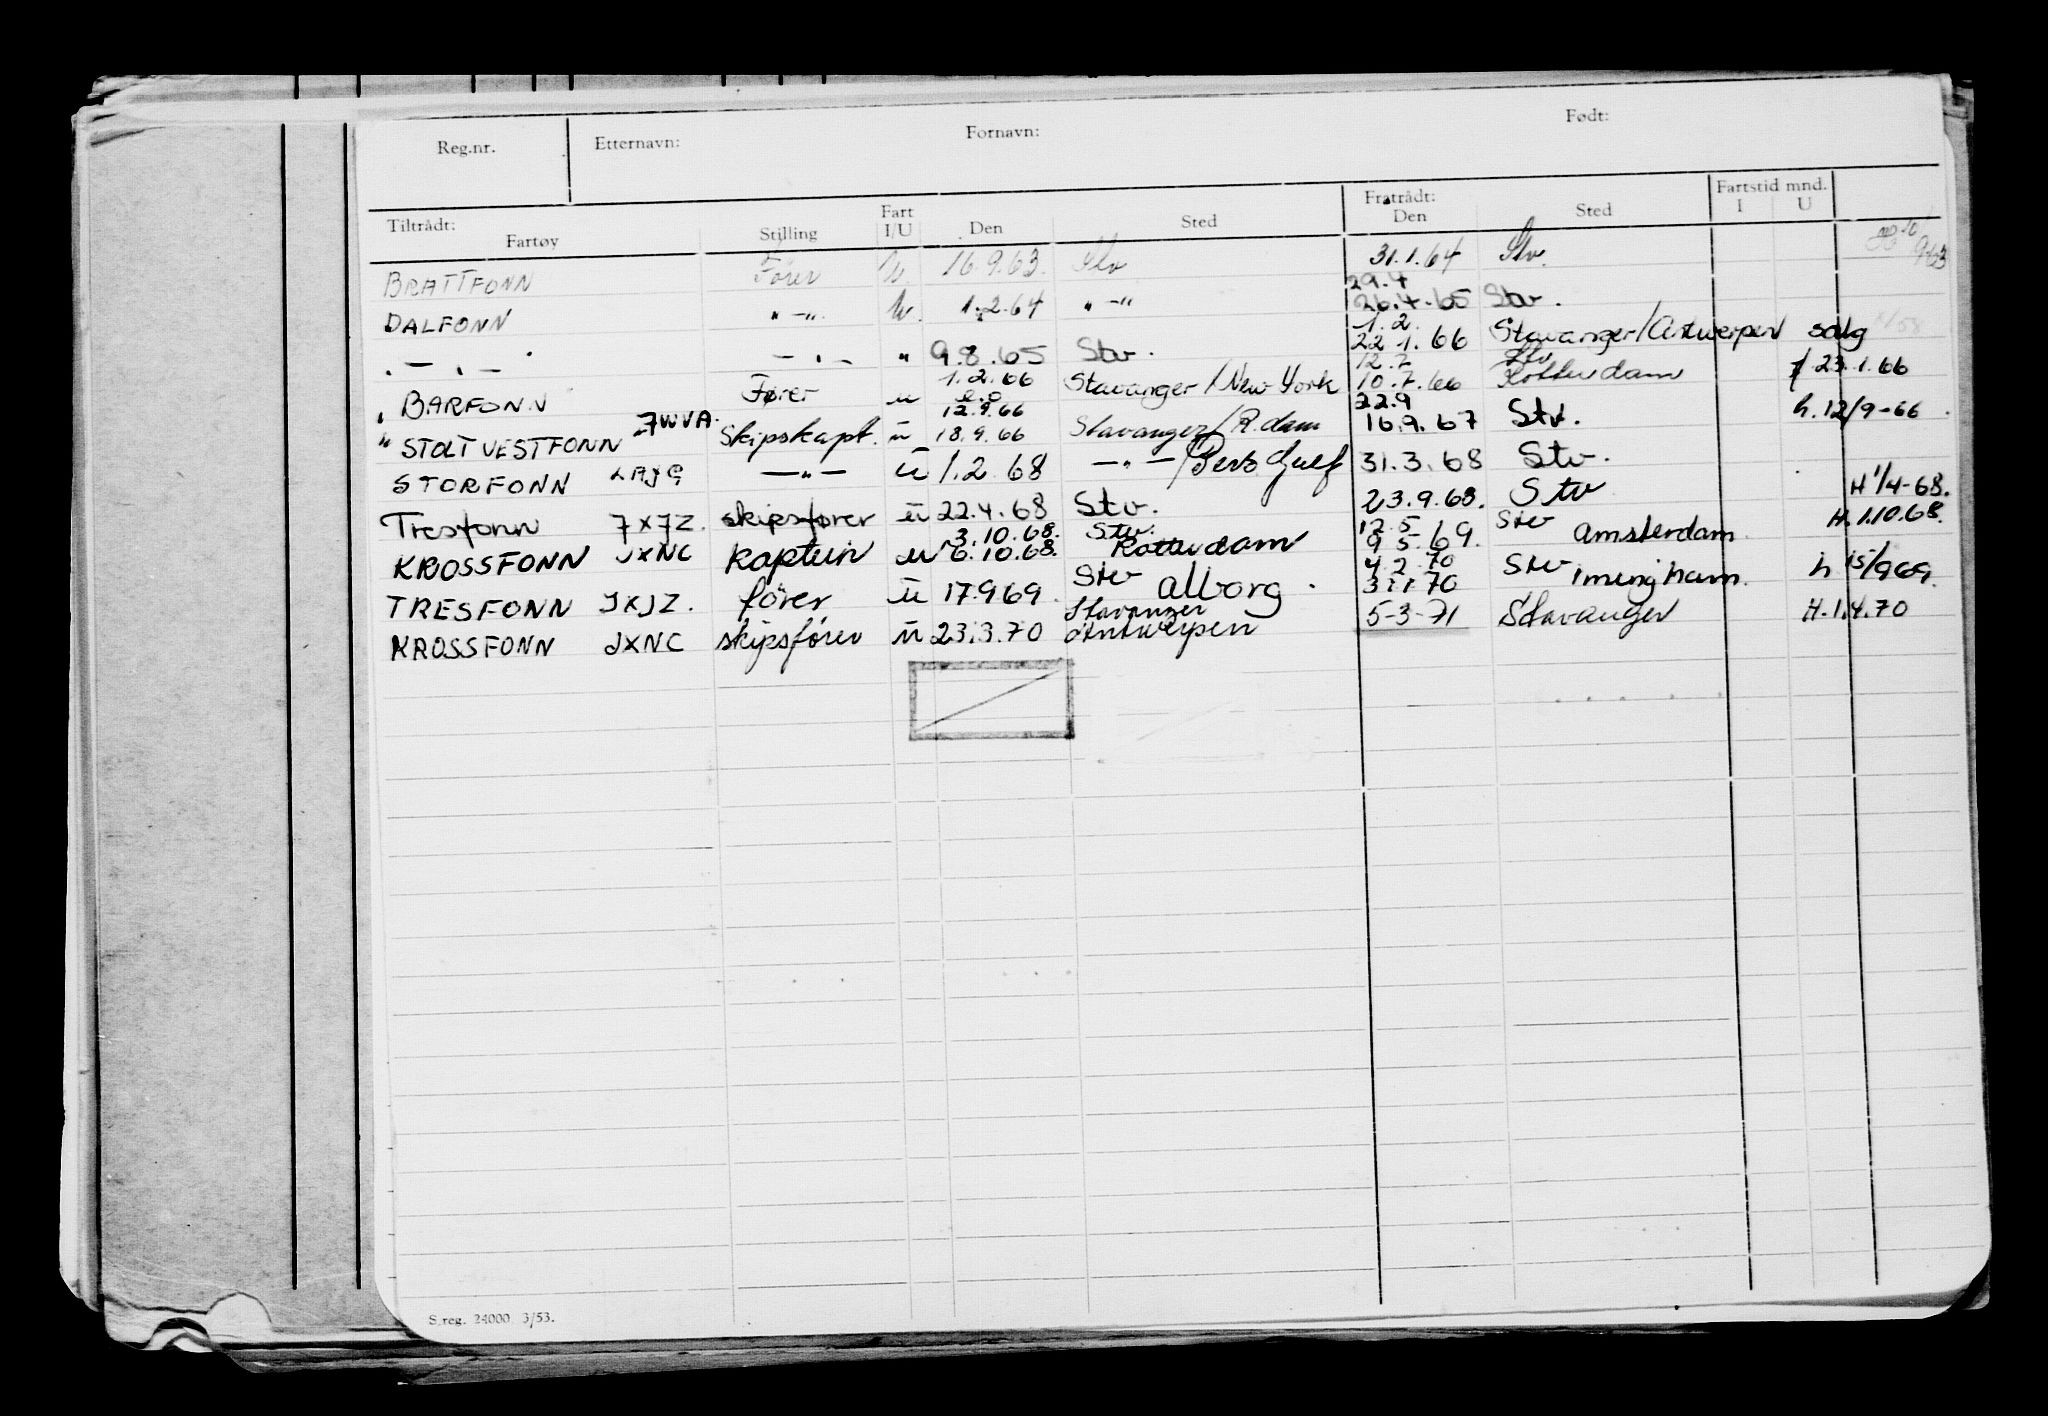 Reg.nr. Etternavn: Fornavn: Født:
Tiltrådt: Fratrådt: Fartstid mnd.
Fartøy Stilling Fart I/U Den Sted Den Sted I U
BRATTFONN Fører U 16.9.63. Stv 31.1.64 Stv. 9/63
29.4
DALFONN " -". U. 1.2.64 " -" 26.4.65 Stv.
1.2.
. — . — — . — " 9.8.65 Stv. 22.1.66 Stavanger/Antwerpen salg
1.2.66 12.7 Stv
" BARFONN Fører u Stavanger/New York 10.7.66 Rotterdam f 23.1.66
12.9.66 22.9
" STOLT VESTFONN JWVA. Skipskapt. u 18.9.66 Stavanger/R.dam 16.9.67 Stv. h. 12/9-66.
STORFONN LAJG — " — u 1.2.68 — " —/Pers. Gulf 31.3.68 Stv.
Tresfonn JXJZ. skipsfører u 22.4.68 Stv. 23.9.68. Stv H 1/4-68.
3.10.68. Stv. 12.5 Stv
KROSSFONN JXNC kaptein u 6.10.68. Rotterdam 9.5.69. Amsterdam H. 1.10.68.
4.2.70
TRESFONN JXJZ. fører u 17.9.69. Stv Alborg. 31.1.70 Stv Imingham. h 15/9 69.
Stavanger
KROSSFONN JXNC skipsfører u 23.3.70 Antwerpen 5-3-71 Stavanger H. 1.4.70
S.reg. 24000 3/53.